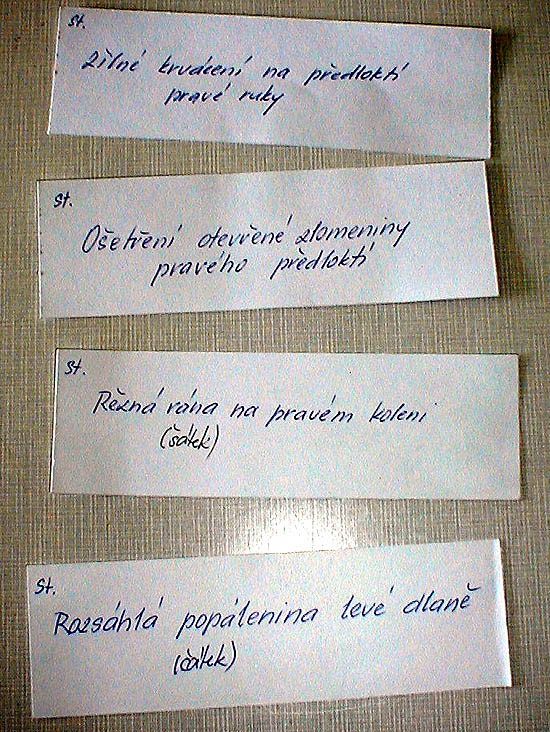 st.
žilné krvácení na předloktí
pravé ruky
st.
Ošetření otevřené zlomeniny
pravého předloktí
st.
Řezná rána na pravém koleni
(šátek)
st.
Rozsáhlá popálenina levé dlaně
(šátek)